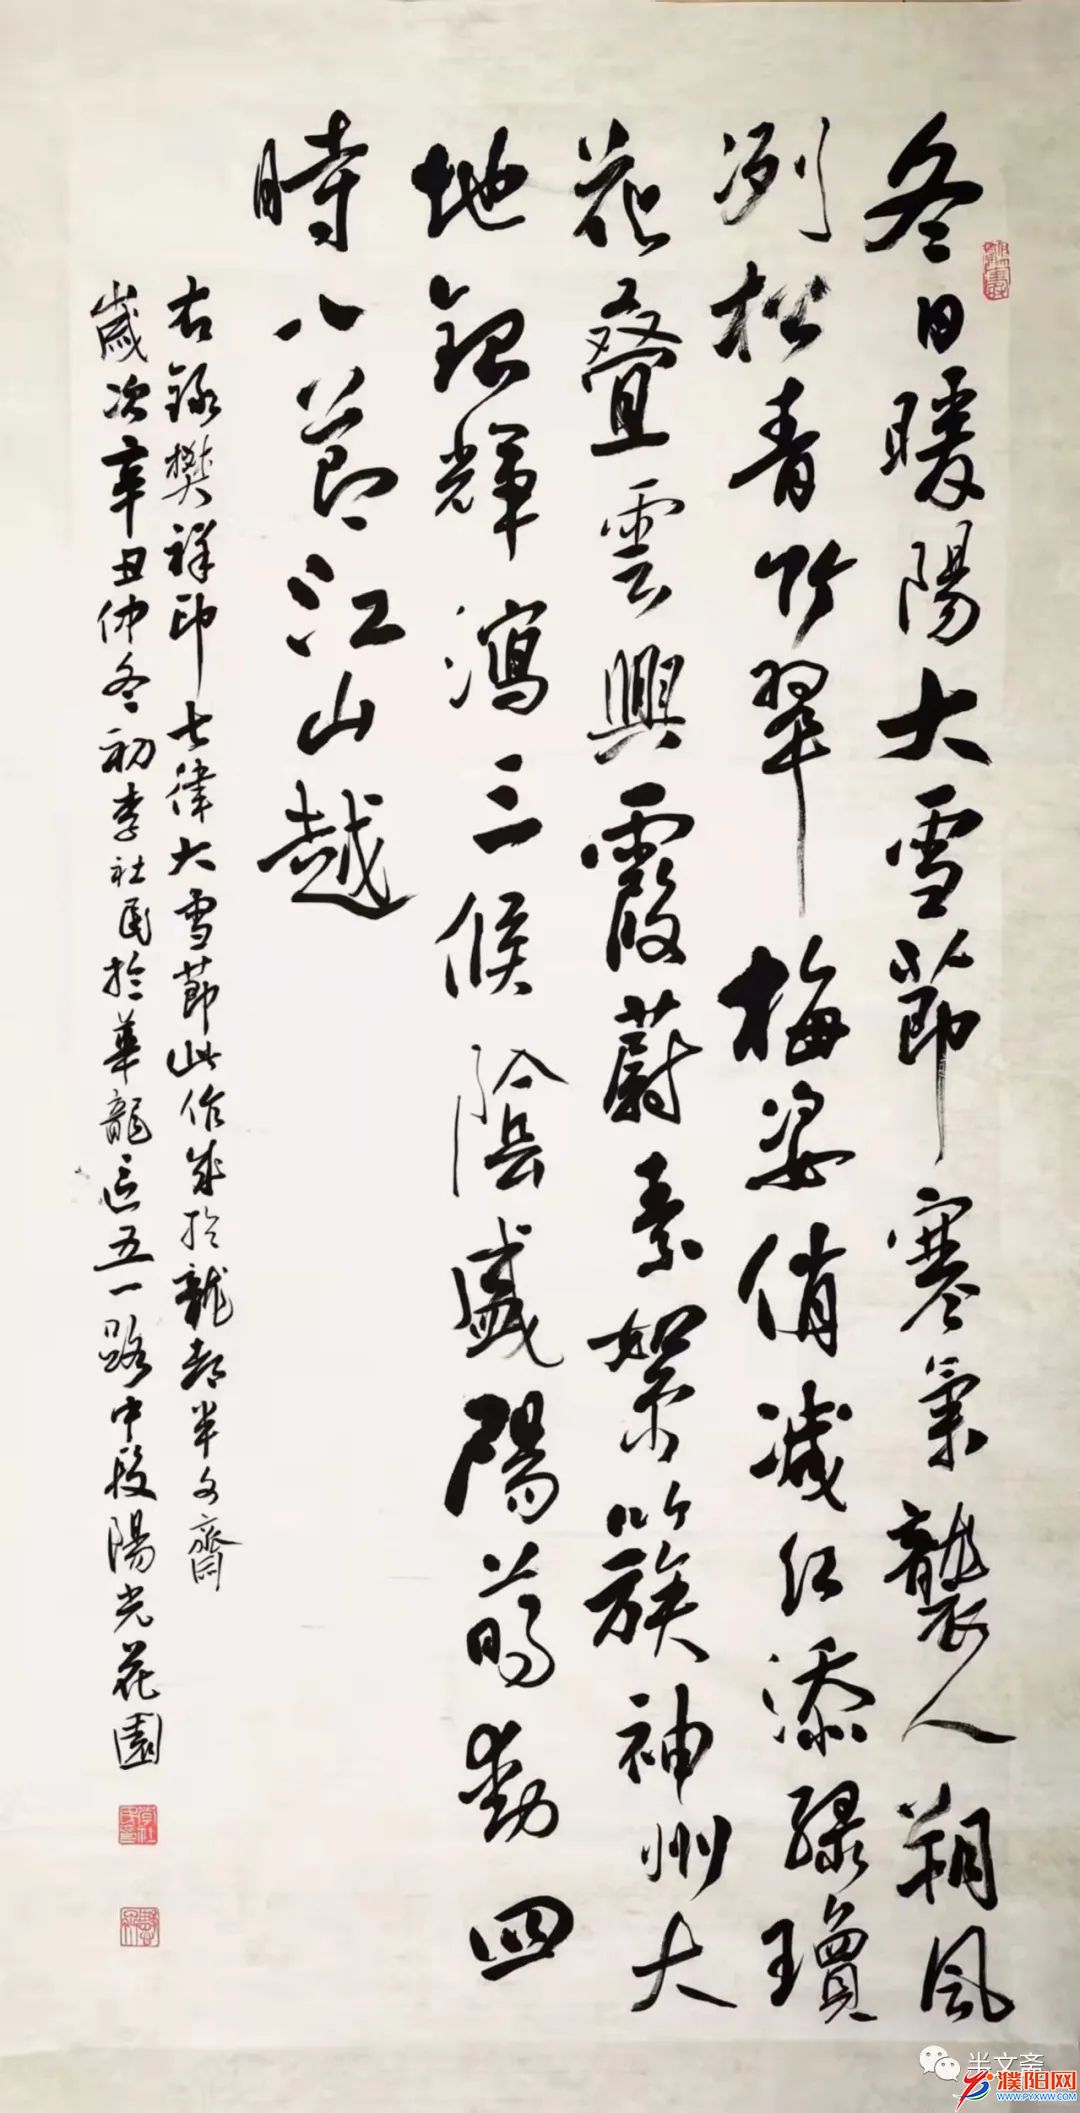 冬日暖陽大雪節寒氣襲人朔風
冽松青竹翠梅姿俏減红添緑瓊
花叠雲興霞蔚素絮簇神州大
地銀輝瀉三候陰盛陽萌動四
時八節江山越
右録樊祥印七律大雪節此作成於龍都半文齋
歲次辛丑仲冬初李社民於華龍区五一路中段陽光花園
半文斋
濮阳网
WWW.PYXWW.COM